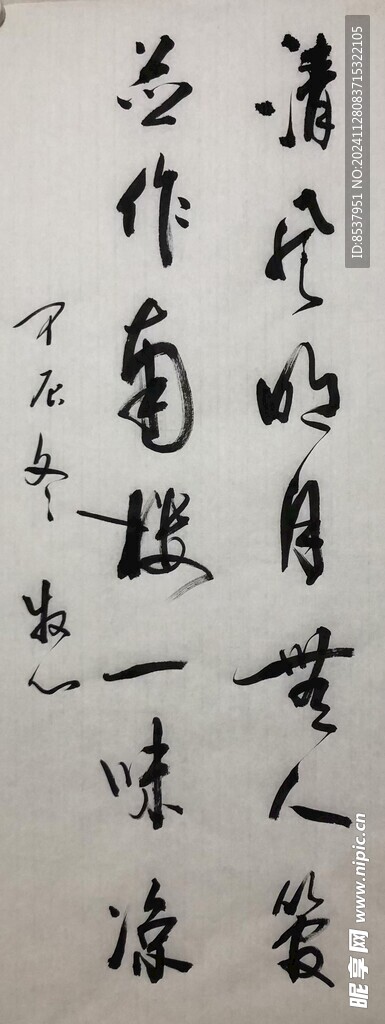 清风明月無人管
并作南楼一味凉
甲辰冬 牧心
ID:8537951 NO:20241128083715322105
昵享网 www.nipic.cn